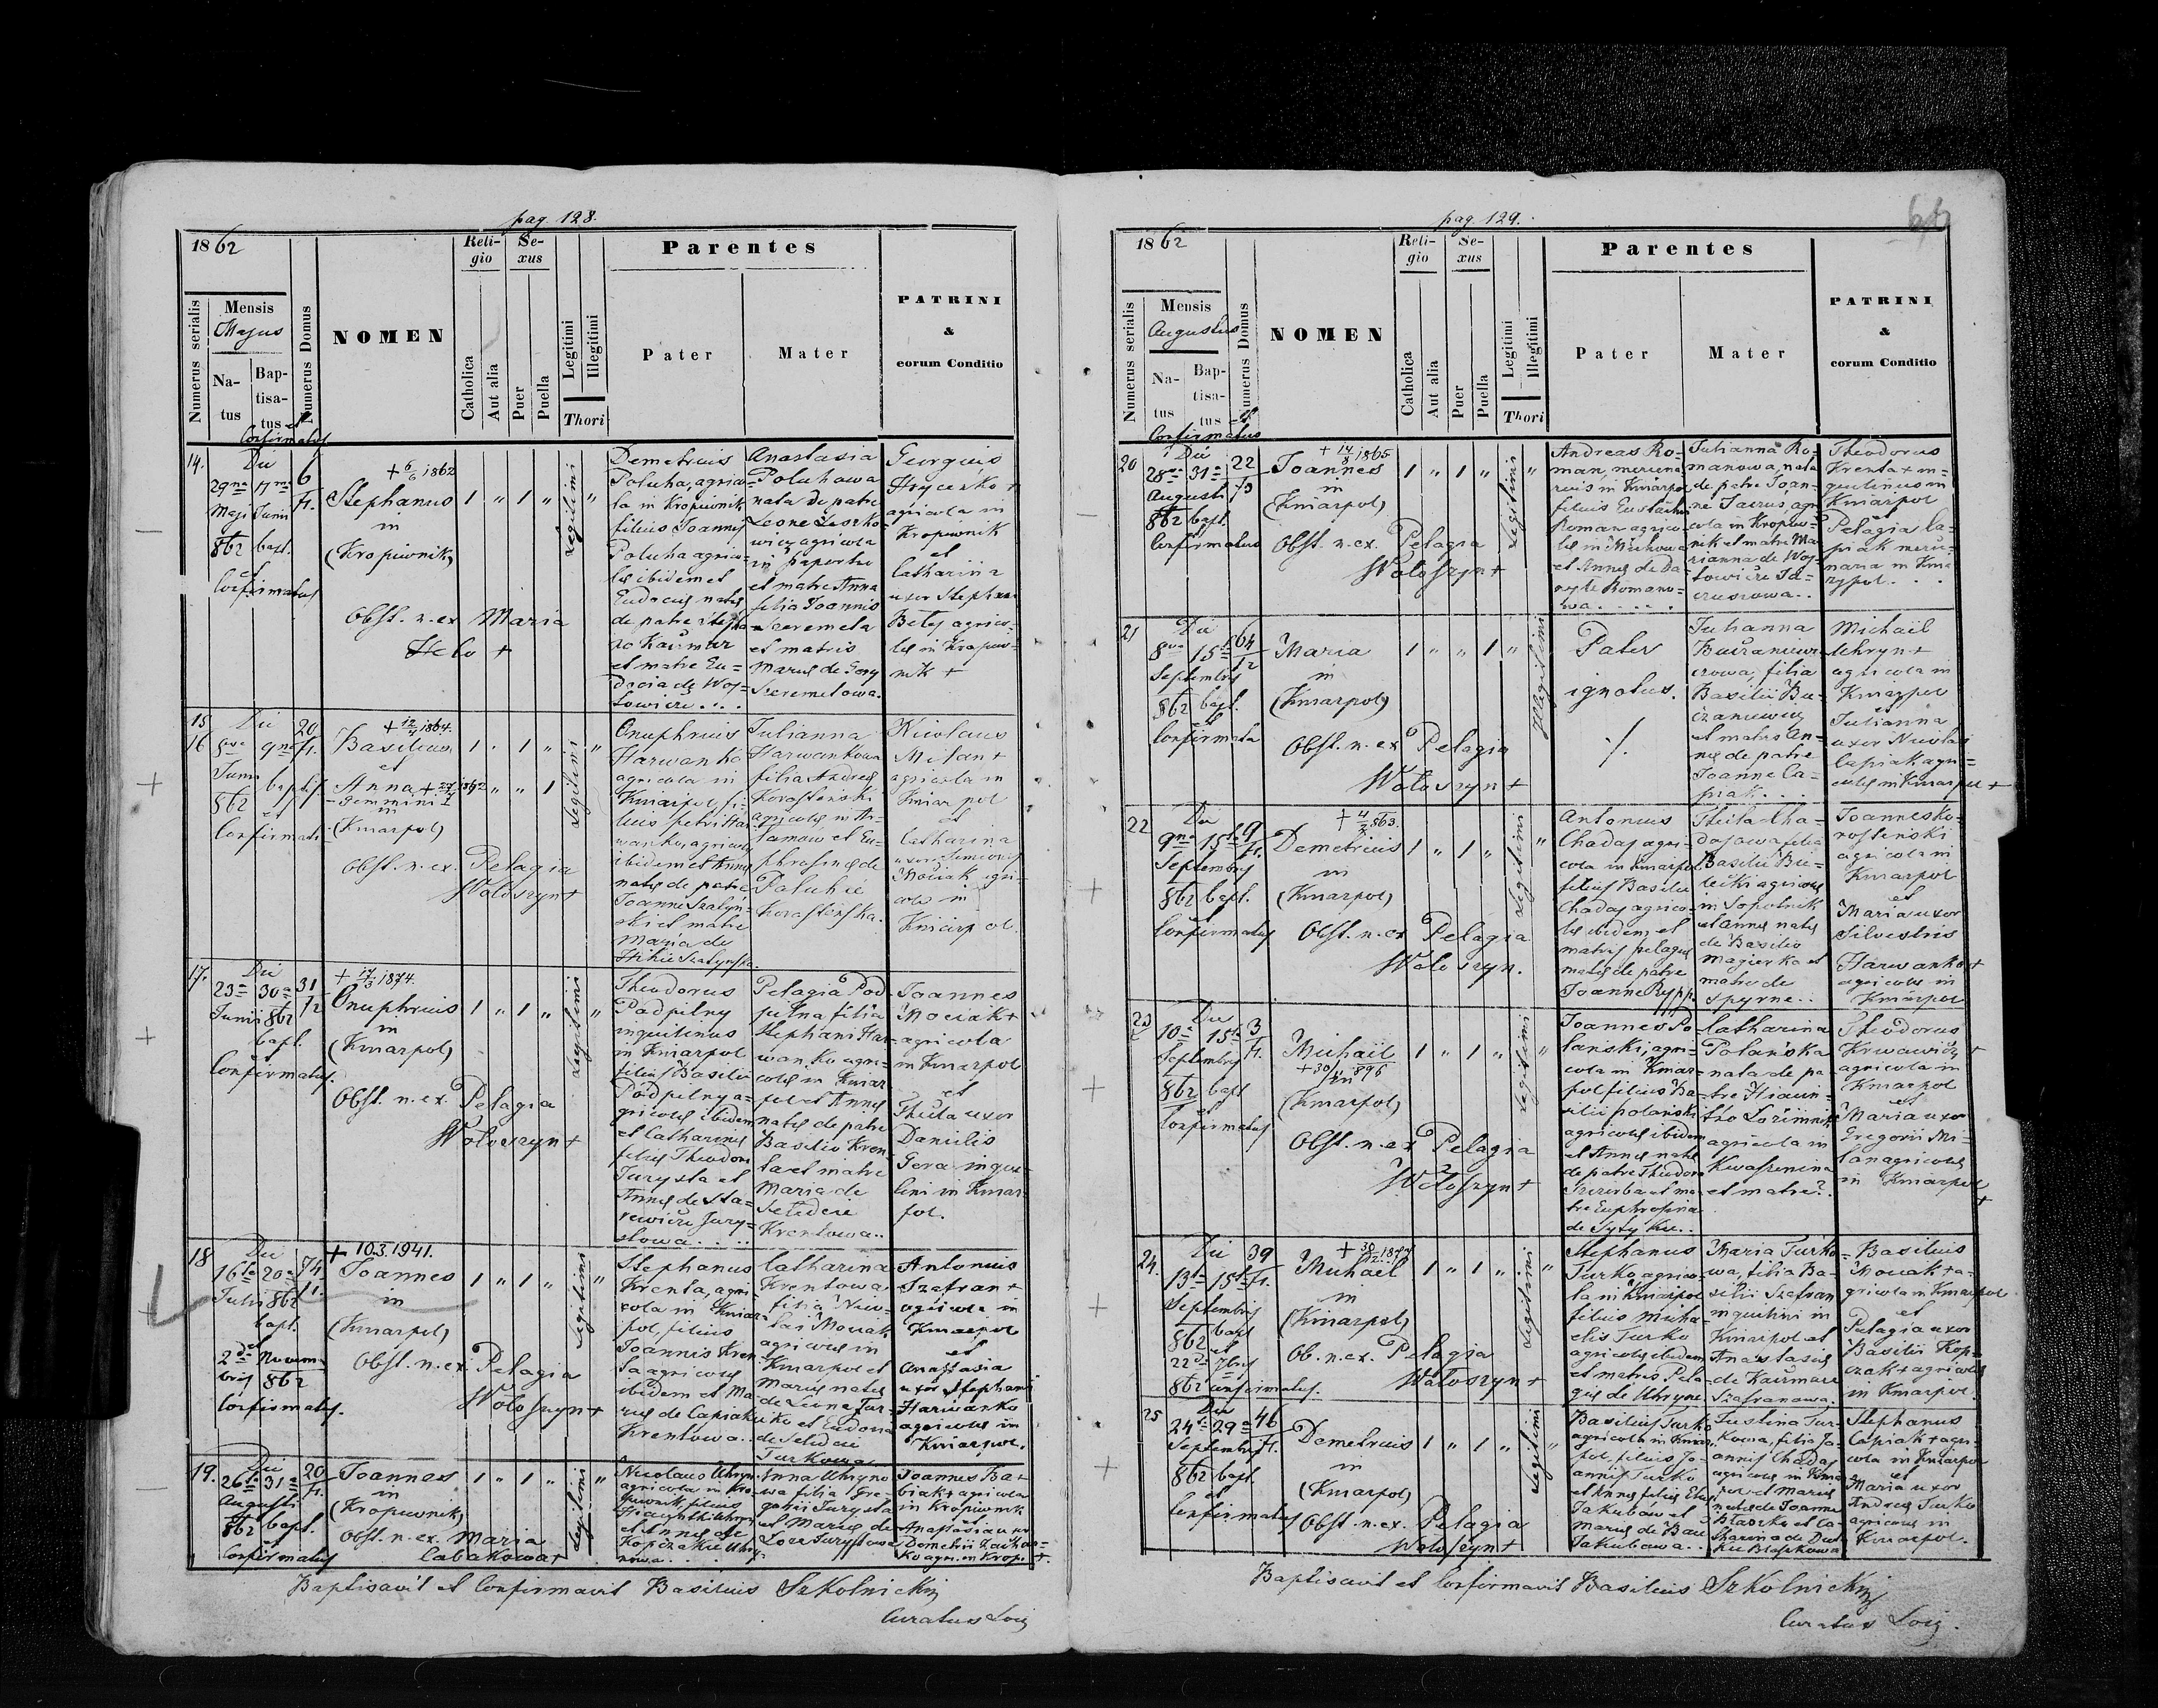 pag. 128.
1862
Numerus serialis
Mensis
Majus
Na-
tus
Bap-
tisa-
tus et
Confirmatus
Numerus Domus
NOMEN
Reli-
gio
Catholica
Aut alia
Se-
xus
Puer
Puella
Legitimi
Illegitimi
Thori
Parentes
Pater
Mater
PATRINI
&
eorum Conditio
14.
Die
29na 17ma
Maji Junii
862 bapt.
et
Confirmatus
6
Fr.
+ 6/6 1862
Stephanus
in
(Kropiwnik)
1 " 1 "
Legitimi
"
Obst. n. ex Maria
Helo +
Demetrius
Polucha, agrico-
la in Kropiwnik
filius Joannis
Polucha agrico-
lae ibidem et
Eudociae natae
de patre Stepha-
no Kaczmar
et matre Eu-
docia de Woy-
towicze . . .
Anastasia
Poluchowa
nata de patre
Leone Leszko
wicz agricola
in Paportno
et matre Anna
filia Joannis
Szeremeta
et matris
Mariae de Gory
Szeremetowa.
Georgius
Hrycenko +
agricola in
Kropiwnik
et
Catharina
uxor Stephani
Beley agrico-
lae in Kropiw-
nik +
15
16
Die
8va 9na
Junii
862 bapti-
et
Confirmati
20
Fr.
+ 12/4 1864.
Basilius
et
Anna
Gemmini
in
(Kniarpol)
1 " 1 "
" " 1
Legitimi
"
Obst. n. ex. Pelagia
Wołoszyn +
Onuphrius
Harwanko
agricola in
Kniarpol, fi-
lius Petri Har
wanko, agricolae
ibidem et Annae
natae de patre
Joanne Szatyń-
ski et matre
Maria de
Hikie Szatyńska.
Julianna
Harwankowa
filia Andreae
Korosteński
agricolae in Ar-
łamow et Eu-
phrosinae de
Poluchie
Korosteńska.
Nicolaus
Milan +
agricola in
Kniarpol
et
Catharina
uxor Simeonis
Nowak agri-
cola in
Kniarpol.
17.
Die
23a 30a
Junii 862
bapt.
et
Confirmatus.
31
/2
+ 17/3 1874.
Onuphrius
in
(Kniarpol)
1 " 1 "
Legitimi
"
Obst. n. ex. Pelagia
Wołoszyn +
Theodorus
Podpilny
inquilinus
in Kniarpol
filius Basilii
Podpilny a-
gricolae ibidem
et Catharinae
filiae Theodori
Jurysta et
Annae de Sta-
rewicze Jury-
stowa . . .
Pelagia Pod
pilna filia
Stephani Har
wanko agri-
colae in Kniar
pol et Annae
natae de patre
Basilio Kren
ta et matre
Maria de
Selidcie
Krentowa ..
Joannes
Nowak +
agricola
in Kniarpol
et
Thecla uxor
Danielis
Gera inqui-
lini in Kniar-
pol.
18
Die
16ta 20a
Julii 862
bapt.
et
2da Novem-
bris 862
Confirmatus.
74
+ 10.3.1941.
Joannes
in
(Kniarpol)
1 " 1 "
Legitimi
"
Obst. n. ex. Pelagia
Wołoszyn +
Stephanus
Krenta, agri
cola in Kniar-
pol, filius
Joannis Kren-
ta agricolae
ibidem et Ma-
riae de Capiaki
Krentowa ..
Catharina
Krentowa
filia Nico-
lai Nowak
agricolae in
Kniarpol et
Mariae natae
de Leone Tur-
ko et Eudocia
de Selidcie
Turkowa
Antonius
Szafran +
agricola in
Kniarpol
et
Anastasia
uxor Stephani
Harwanko
agricolae in
Kniarpol.
19.
Die
26ta 31a
Augusti
862 bapt.
et
Confirmatus
20
Fr.
Joannes
in
(Kropiwnik)
1 " 1 "
Legitimi
"
Obst. n. ex. Maria
Cabakowa +
Nicolaus Uhryn
agricola in Kro-
piwnik, filius
et Annae de
Kopczakie Uhry-
nowa . . .
Anna Uhryno
wa filia Gre-
gorii Jurysta
et Mariae de
Lore Jurystowa
Joannes Ba-
biak + agricola
in Kropiwnik
et
Anastasia uxor
Demetrii
agri. in Krop. +
Baptisavit et Confirmavit Basilius Szkolnickij
Curatus Loci
pag. 129.
1862
Numerus serialis
Mensis
Augustus
Na-
tus
Bap-
tisa-
tus et
Confirmatus
Numerus Domus
NOMEN
Reli-
gio
Catholica
Aut alia
Se-
xus
Puer
Puella
Legitimi
Illegitimi
Thori
Parentes
Pater
Mater
PATRINI
&
eorum Conditio
20
Die
28va 31a
Augusti
862 bapt.
Confirmatus
22
+ 14/8 1865
Joannes
in
(Kniarpol)
1 " 1 "
Legitimi
"
Obst. n. ex. Pelagia
Wołoszyn +
Andreas Ro-
man, mercena
rius, in Kniarpol
filius Eustachii
Roman agrico-
lae in Michowa
et Annae de Da-
Romano-
wa . . . . .
Julianna Ro-
manowa, nata
de patre Joan-
ne Jacrus, agri
cola in Kropiw-
nik et matre Ma
rianna de Woy-
towicze Ja-
crusowa ..
Theodorus
Krenta + in-
quilinus in
Kniarpol
et
Pelagia Ca-
piak merce-
naria in Knia
rzpol . . .
21
Die
8va 15ta
Septembris
862 bapt.
et
Confirmata
64
/2
Maria
in
(Kniarpol)
1 " " 1 "
Illegitimi
Obst. n. ex Pelagia
Wołoszyn +
Pater
ignotus.
/.
Julianna
Buczaniewi-
czowa, filia
Basilii Bu-
czaniewicz
et matris An-
nae de patre
Joanne Ca-
piak . . .
Michaël
Uhryn +
agricola in
Kniarpol
et
Julianna
uxor Nicolai
Capiak agri-
colae in Kniarpol +
22
Die
9na 15ta
Septembris
862 bapt.
Confirmatus
9
Fr.
863.
Demetrius
in
(Kniarpol)
1 " 1 "
Legitimi
"
Obst. n. ex Pelagia
Wołoszyn.
Antonius
Chaday agri-
cola in Kniarpol
filius Basilii
Chaday agrico-
lae ibidem, et
matris Pelagiae
natae de patre
Joanne
Thecla Cha-
dajowa filia
Basilii Bu-
łecki agricolae
in Sopotnik
et Annae natae
de Basilio
Magierka et
matre de
Spyrne ..
Joannes Ko-
rosteński
agricola in
Kniarpol
et
Maria uxor
Silvestris
Harwanko +
agricolae in
Kniarpol
23
Die
10a 15ta
Septembris
862 bapt
et
Confirmatus
3
Fr.
Michaël
+ 30/ 896
in
(Kniarpol)
1 " 1 "
Legitimi
"
Obst. n. ex Pelagia
Wołoszyn +
Joannes Po
lański, agri-
cola in Kniar-
pol filius Ba-
silii Polański
agricolae ibidem
et Annae natae
de patre Theodoro
Szczerba et ma-
tre Euphrosina
de
Catharina
Polańska
nata de pa-
tre Hiacin-
tho
agricola in
Kwaszenina
et matre?.
Theodorus
Krwawicz +
agricola in
Kniarpol
et
Maria uxor
Gregorii Mi-
lan agricolae
in Kniarpol
+
24.
Die
13a 15ta
Septembris
862 bapt
et
22da 7bris
862 confirmatus.
39
Fr.
+ 30/12 18
Michaël
in
(Kniarpol)
1 " 1 "
Legitimi
"
Ob. n. ex. Pelagia
Wołoszyn +
Stephanus
Turko, agrico-
la in Kniarpol
filius Micha-
elis Turko
agricolae ibidem
et matris Pela-
giae de Uhryne
Maria Turko-
wa, filia Ba-
silii Szafran
inquilini in
Kniarpol et
Anastasiae
de Kaczmare
Szafranowa.
Basilius
Nowak + a-
gricola in Kniarpol
et
Pelagia uxor
Basilii Kop-
czak + agricolae
in Kniarpol.
25
Die
24ta 29a
Septembris
862 bapt.
et
Confirmatus
46
Fr.
Demetrius
in
(Kniarpol)
1 " 1 "
Legitimi
"
Obst. n. ex. Pelagia
Wołoszyn +
Basilius Turko
agricola in Kniar-
pol, filius Jo-
annis Turko
et Annae filiae
Jakubów et
Mariae de
Jakubowa ..
Justina Tur-
kowa, filia Jo-
annis Chaday
agricolae in Knia
pol et Mariae
natae de Joanne
Błaszko et Ca-
tharina de
Błaszkowa
Stephanus
Capiak + agri-
cola in Kniarpol
et
Maria uxor
Andreae Turko
agricolae in
Kniarpol.
Baptisavit et Confirmavit Basilius Szkolnickij
Curatus Loci.